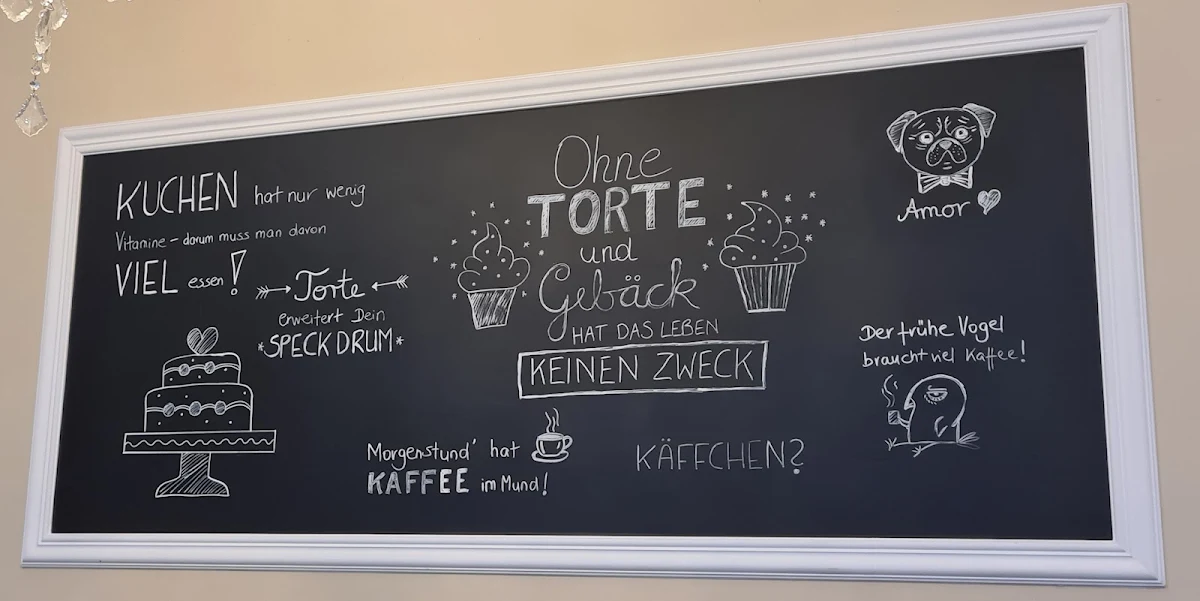 KUCHEN hat nur wenig
Vitamine – darum muss man davon
VIEL essen!
Torte
erweitert Dein
*SPECKDRUM*
Ohne
TORTE
und
Gebäck
HAT DAS LEBEN
KEINEN ZWECK
Morgenstund' hat
KAFFEE im Mund!
KÄFFCHEN?
Amor
Der frühe Vogel
braucht viel Kaffee!